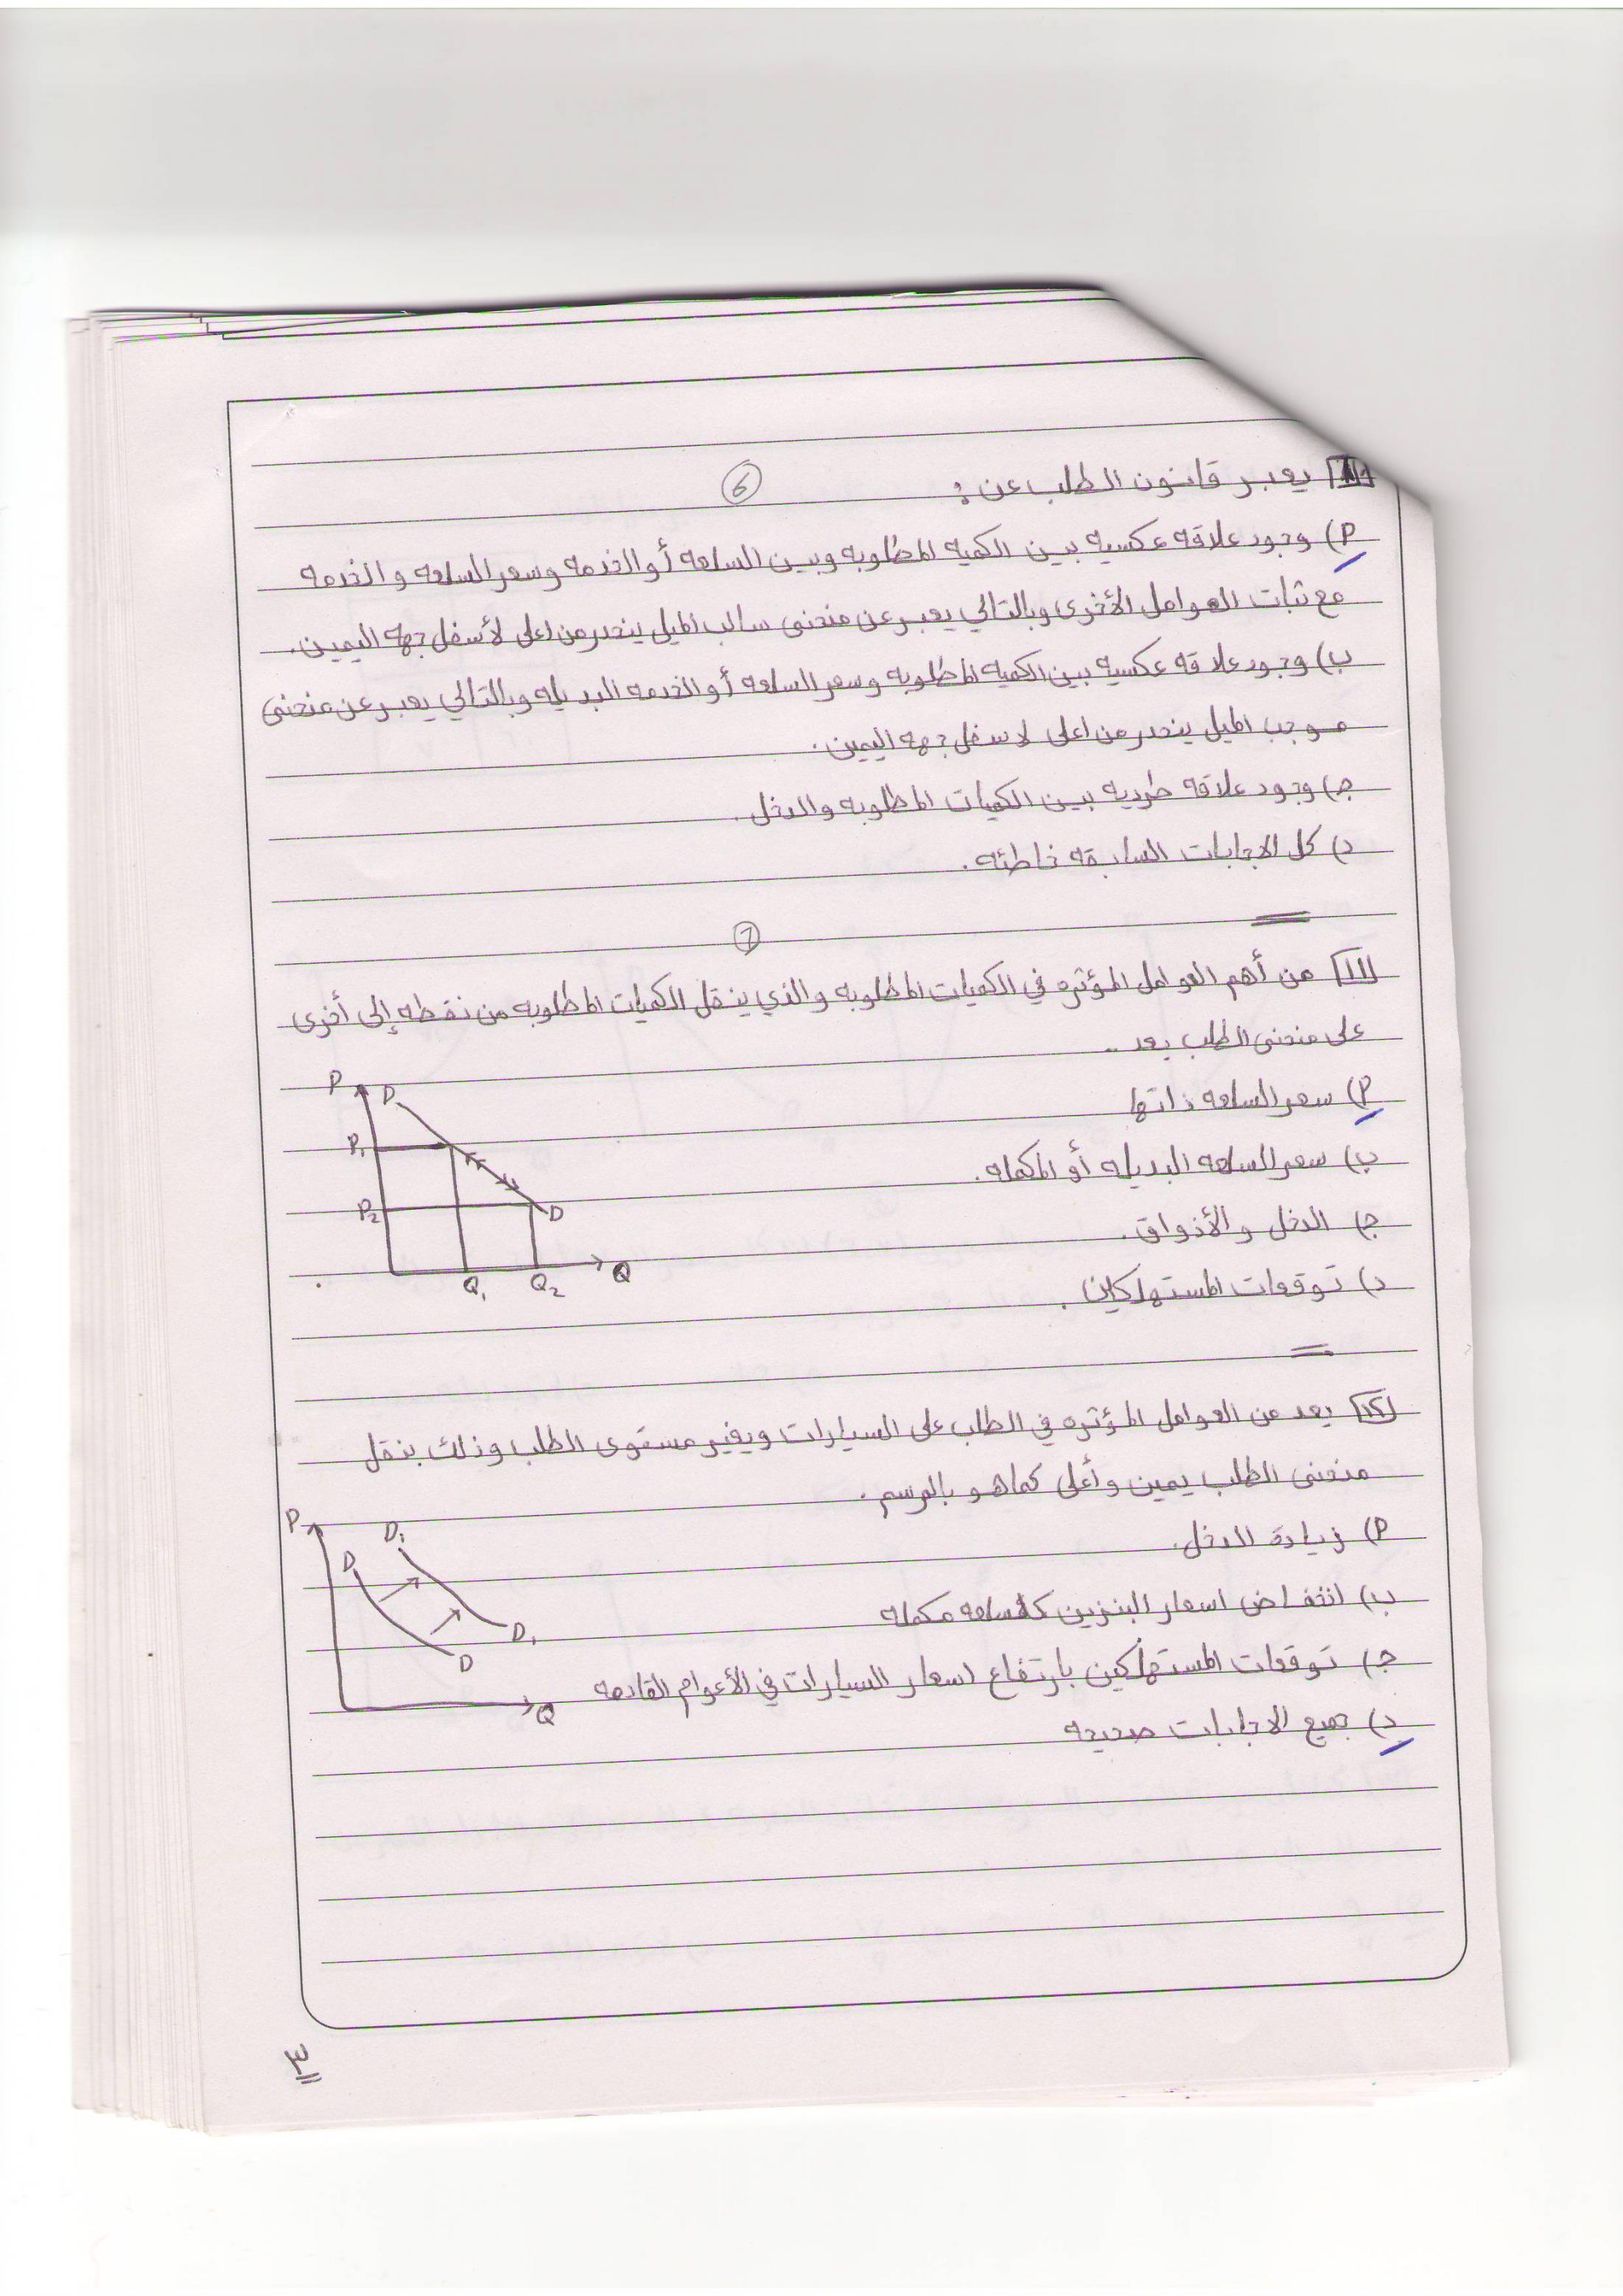 يعبر قانون الطلب عن :
6
أ) وجود علاقه عكسيه بين الكميه المطلوبه وبين السلعه أو الخدمه وسعر السلعه والخدمه
مع ثبات العوامل الأخرى وبالتالي يعبر عن منحنى سالب الميل ينحدر من اعلى لأسفل جهه اليمين.
ب) وجود علاقه عكسيه بين الكميه المطلوبه وسعر السلعه أو الخدمه البديله وبالتالي يعبر عن منحنى
موجب الميل ينحدر من اعلى لاسفل جهه اليمين.
ج) وجود علاقه طرديه بين الكميات المطلوبه والدخل.
د) كل الاجابات السابقه خاطئه.
7
١١ من أهم العوامل المؤثره في الكميات المطلوبه والذي ينقل الكميات المطلوبه من نقطه إلى أخرى
على منحنى الطلب يعد ..
أ) سعر السلعه ذاتها
ب) سعر السلعه البديله أو المكمله.
ج) الدخل والأذواق.
د) توقعات المستهلكين.
P D
P1
P2 D
Q1 Q2 Q
١٢ يعد من العوامل المؤثره في الطلب على السيارات ويغير مستوى الطلب وذلك بنقل
منحنى الطلب يمين وأعلى كما هو بالرسم.
أ) زيادة الدخل.
ب) انخفاض اسعار البنزين كسلعه مكمله
ج) توقعات المستهلكين بارتفاع اسعار السيارات في الأعوام القادمه
د) جميع الاجابات صحيحه
P D1
D
D1
D
Q